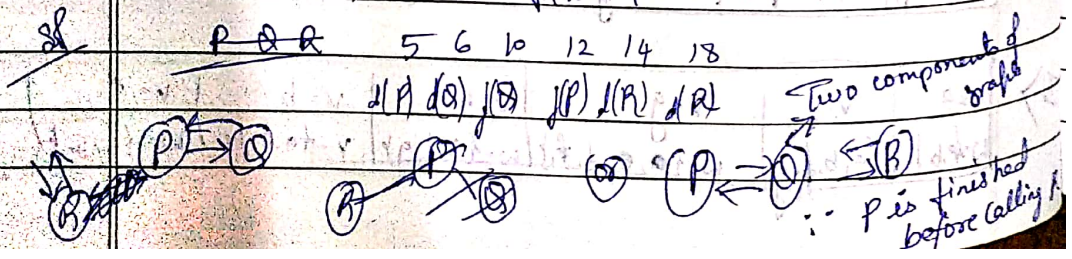 Sol P Q R 5 6 10 12 14 18
d(P) d(Q) f(Q) f(P) d(R) f(R) Two components of graph
P Q R
R P Q or P Q R
∵ P is finished
before calling